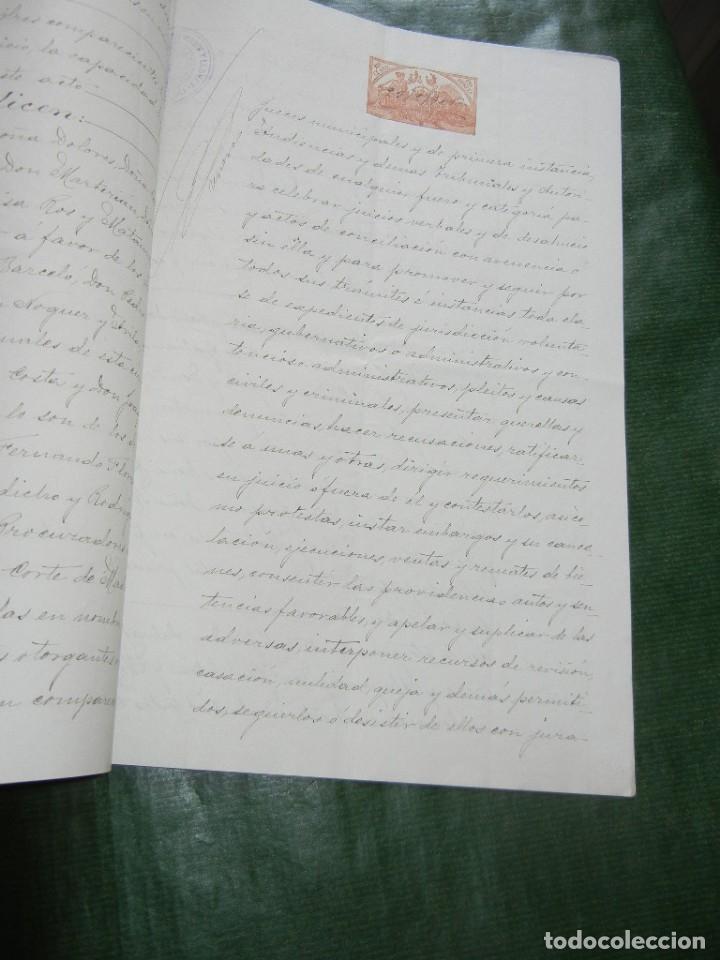 bres comparecient
cio, la capacidad
ste acto
dicen:
Doña Dolores, Dona
Don Martirian
isa Ros y Mata
á favor de los
Barcelo, Don
Noguer y
de este
Costa y Don
lo son de los
Fernando
dicho y Rodri
Procuradores
Corte de Ma
las en nombr
s otorgantes
n compare
jueces municipales y de primera instancia,
Audiencias y demas tribunales y Autori-
dades de cualquier fuero y categoria pa-
ra celebrar juicios verbales y de desahucio
y actos de conciliación con avenencia ó
sin ella y para promover y seguir por
todos sus trámites é instancias toda cla-
se de expedientes de jurisdicción volunta-
ria, gubernativos o administrativos y con-
tencioso administrativos, pleitos y causas
civiles y criminales, presentar querellas y
denuncias, hacer recusaciones, ratificar-
se á unas y otras, dirigir requerimientos
en juicio o fuera de él y contestarlos, asi co-
mo protestas, instar embargos y su cance-
lación, ejecuciones, ventas y remates de bie-
nes, consentir las providencias autos y sen-
tencias favorables, y apelar y suplicar de las
adversas, interponer recursos de revisión,
casación, nulidad, queja y demas permiti-
dos, seguirlos ó desistir de ellos con jura-
todocoleccion.net